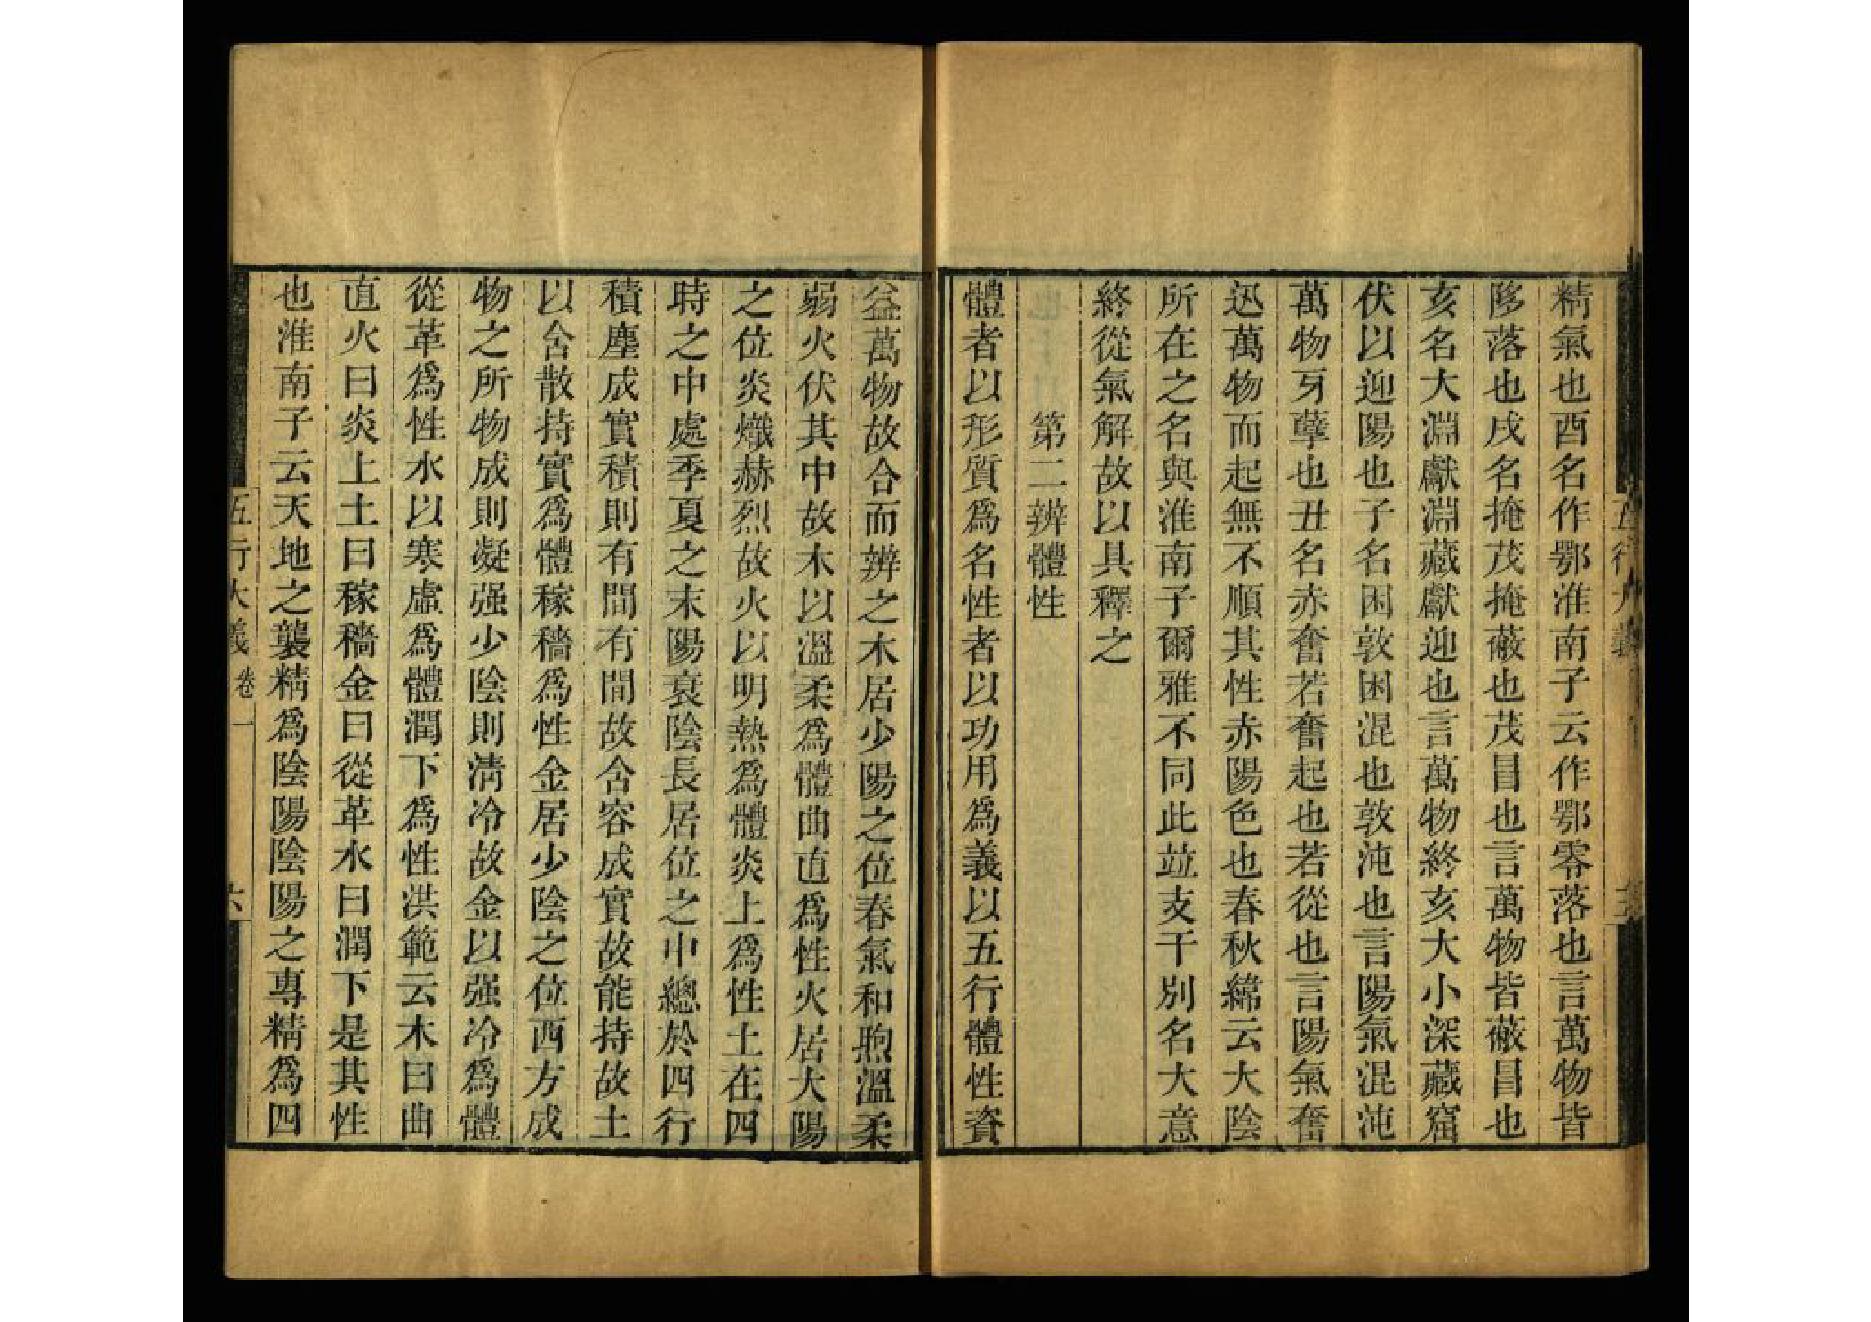 精氣也酉名作鄂淮南子云作鄂零落也言萬物皆
陊落也戌名掩茂掩蔽也茂冒也言萬物皆蔽冒也
亥名大淵獻淵藏獻迎也言萬物終亥大小深藏窟
伏以迎陽也子名困敦困混也敦沌也言陽氣混沌
萬物牙孽也丑名赤奮若奮起也若從也言陽氣奮
迅萬物而起無不順其性赤陽色也春秋緯云大陰
所在之名與淮南子爾雅不同此竝支干別名大意
終從氣解故以具釋之
第二辨體性
體者以形質爲名性者以功用爲義以五行體性資
益萬物故合而辨之木居少陽之位春氣和煦溫柔
弱火伏其中故木以溫柔爲體曲直爲性火居大陽
之位炎熾赫烈故火以明熱爲體炎上爲性土在四
時之中處季夏之末陽衰陰長居位之中總於四行
積塵成實積則有間有間故含容成實故能持故土
以含散持實爲體稼穡爲性金居少陰之位西方成
物之所物成則凝强少陰則淸冷故金以强冷爲體
從革爲性水以寒虛爲體潤下爲性洪範云木曰曲
直火曰炎上土曰稼穡金曰從革水曰潤下是其性
也淮南子云天地之襲精爲陰陽陰陽之專精爲四
五行大義 卷一 六